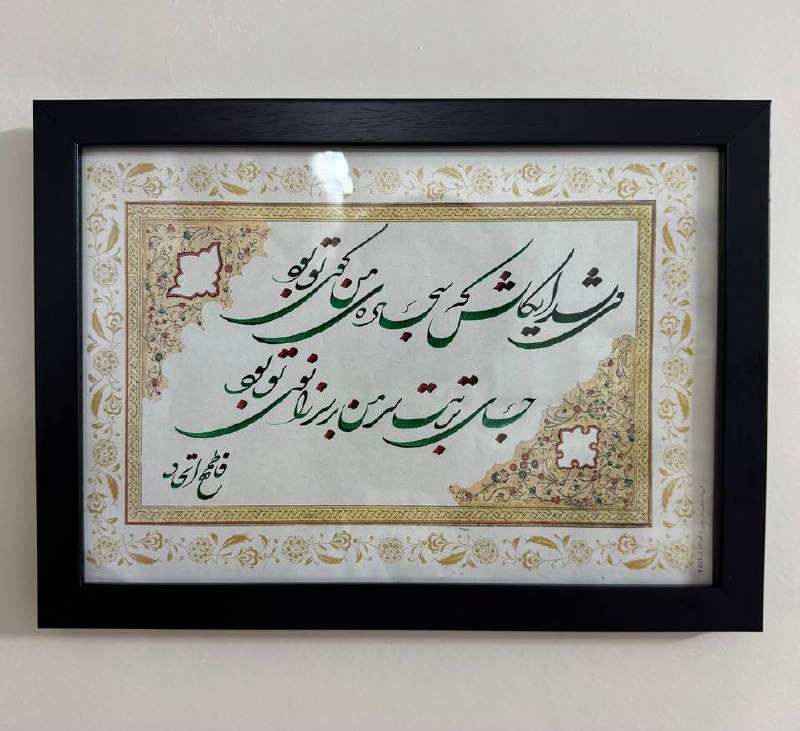 می شد ایکاش که سجاده ی من کوی تو بود
جای تربت سر من بر سر زانوی تو بود
فاطمه اتحاد